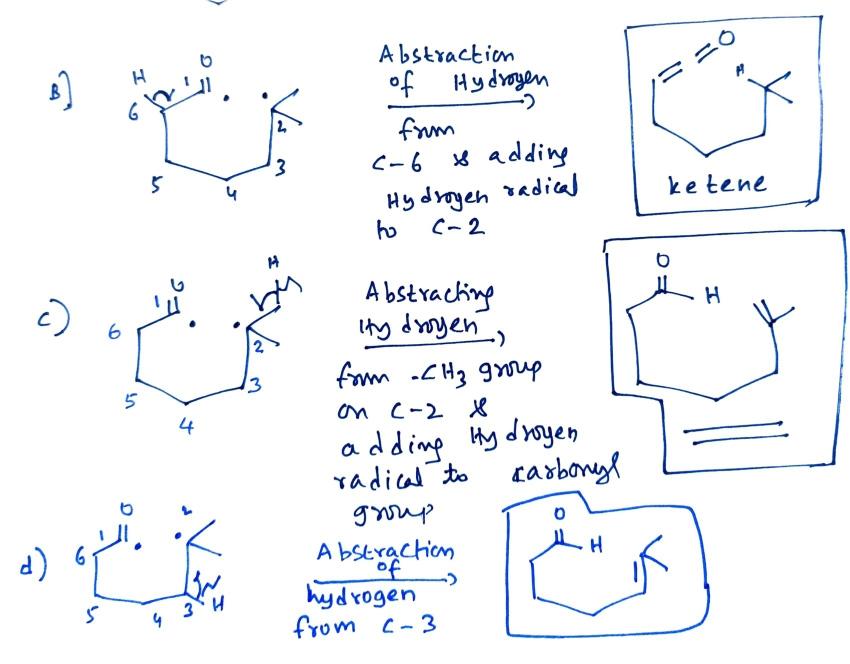 B]
H
O
1
6
2
5
4
3
Abstraction
of Hydrogen
from
C-6 & adding
Hydrogen radical
to C-2
O
H
ketene
c)
H
O
1
6
2
5
4
3
Abstracting
Hydrogen
from -CH3 group
on C-2 &
adding Hydrogen
radical to carbonyl
group
O
H
d)
O
2
1
6
5
4
3
H
Abstraction
of
hydrogen
from C-3
O
H